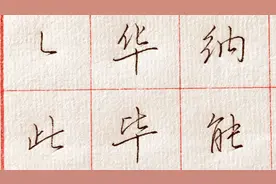 乚 华 纳
此 毕 能